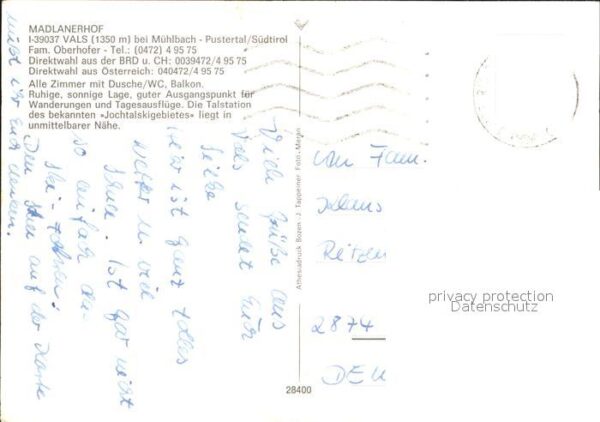 MADLANERHOF
I-39037 VALS (1350 m) bei Mühlbach - Pustertal/Südtirol
Fam. Oberhofer - Tel.: (0472) 4 95 75
Direktwahl aus der BRD u. CH: 0039472/4 95 75
Direktwahl aus Österreich: 040472/4 95 75
Alle Zimmer mit Dusche/WC, Balkon.
Ruhige, sonnige Lage, guter Ausgangspunkt für
Wanderungen und Tagesausflüge. Die Talstation
des bekannten »Jochtalskigebietes« liegt in
unmittelbarer Nähe.
Viele Grüße aus
Vals sendet Euch
Silke
Hier ist ganz tolles
Wetter u. viel
Schnee. Ist gar nicht
so einfach das
Ski-fahren!
Den auf der Karte
müßt ihr Euch denken.
An Fam.
Klaus
2874
Athesiadruck Bozen - J. Tappeiner Foto, Meran
28400
privacy protection
Datenschutz